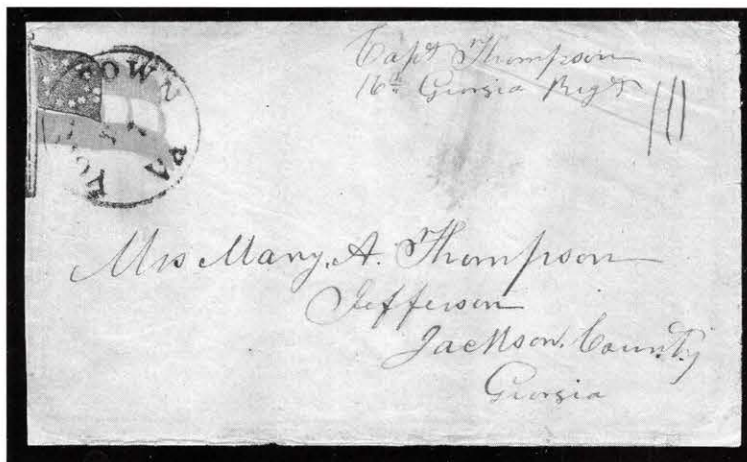 TOWN PA
Capt Thompson
16th Georgia Regt
Mrs Mary. A. Thompson
Jefferson
Jackson. County
Georgia